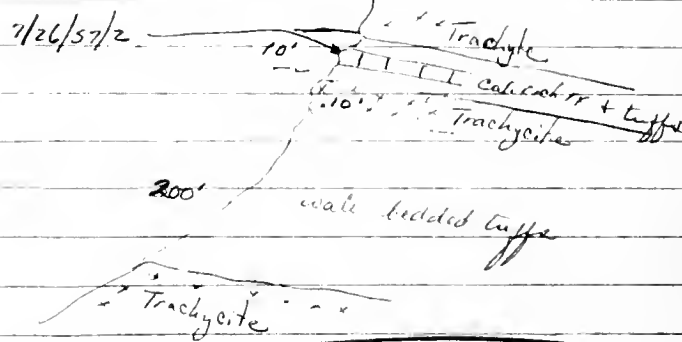 7/26/57/2
Trachyte
10'
calcisch rr + tuffs
10'
Trachycite
200'
wale bedded tuffs
Trachycite